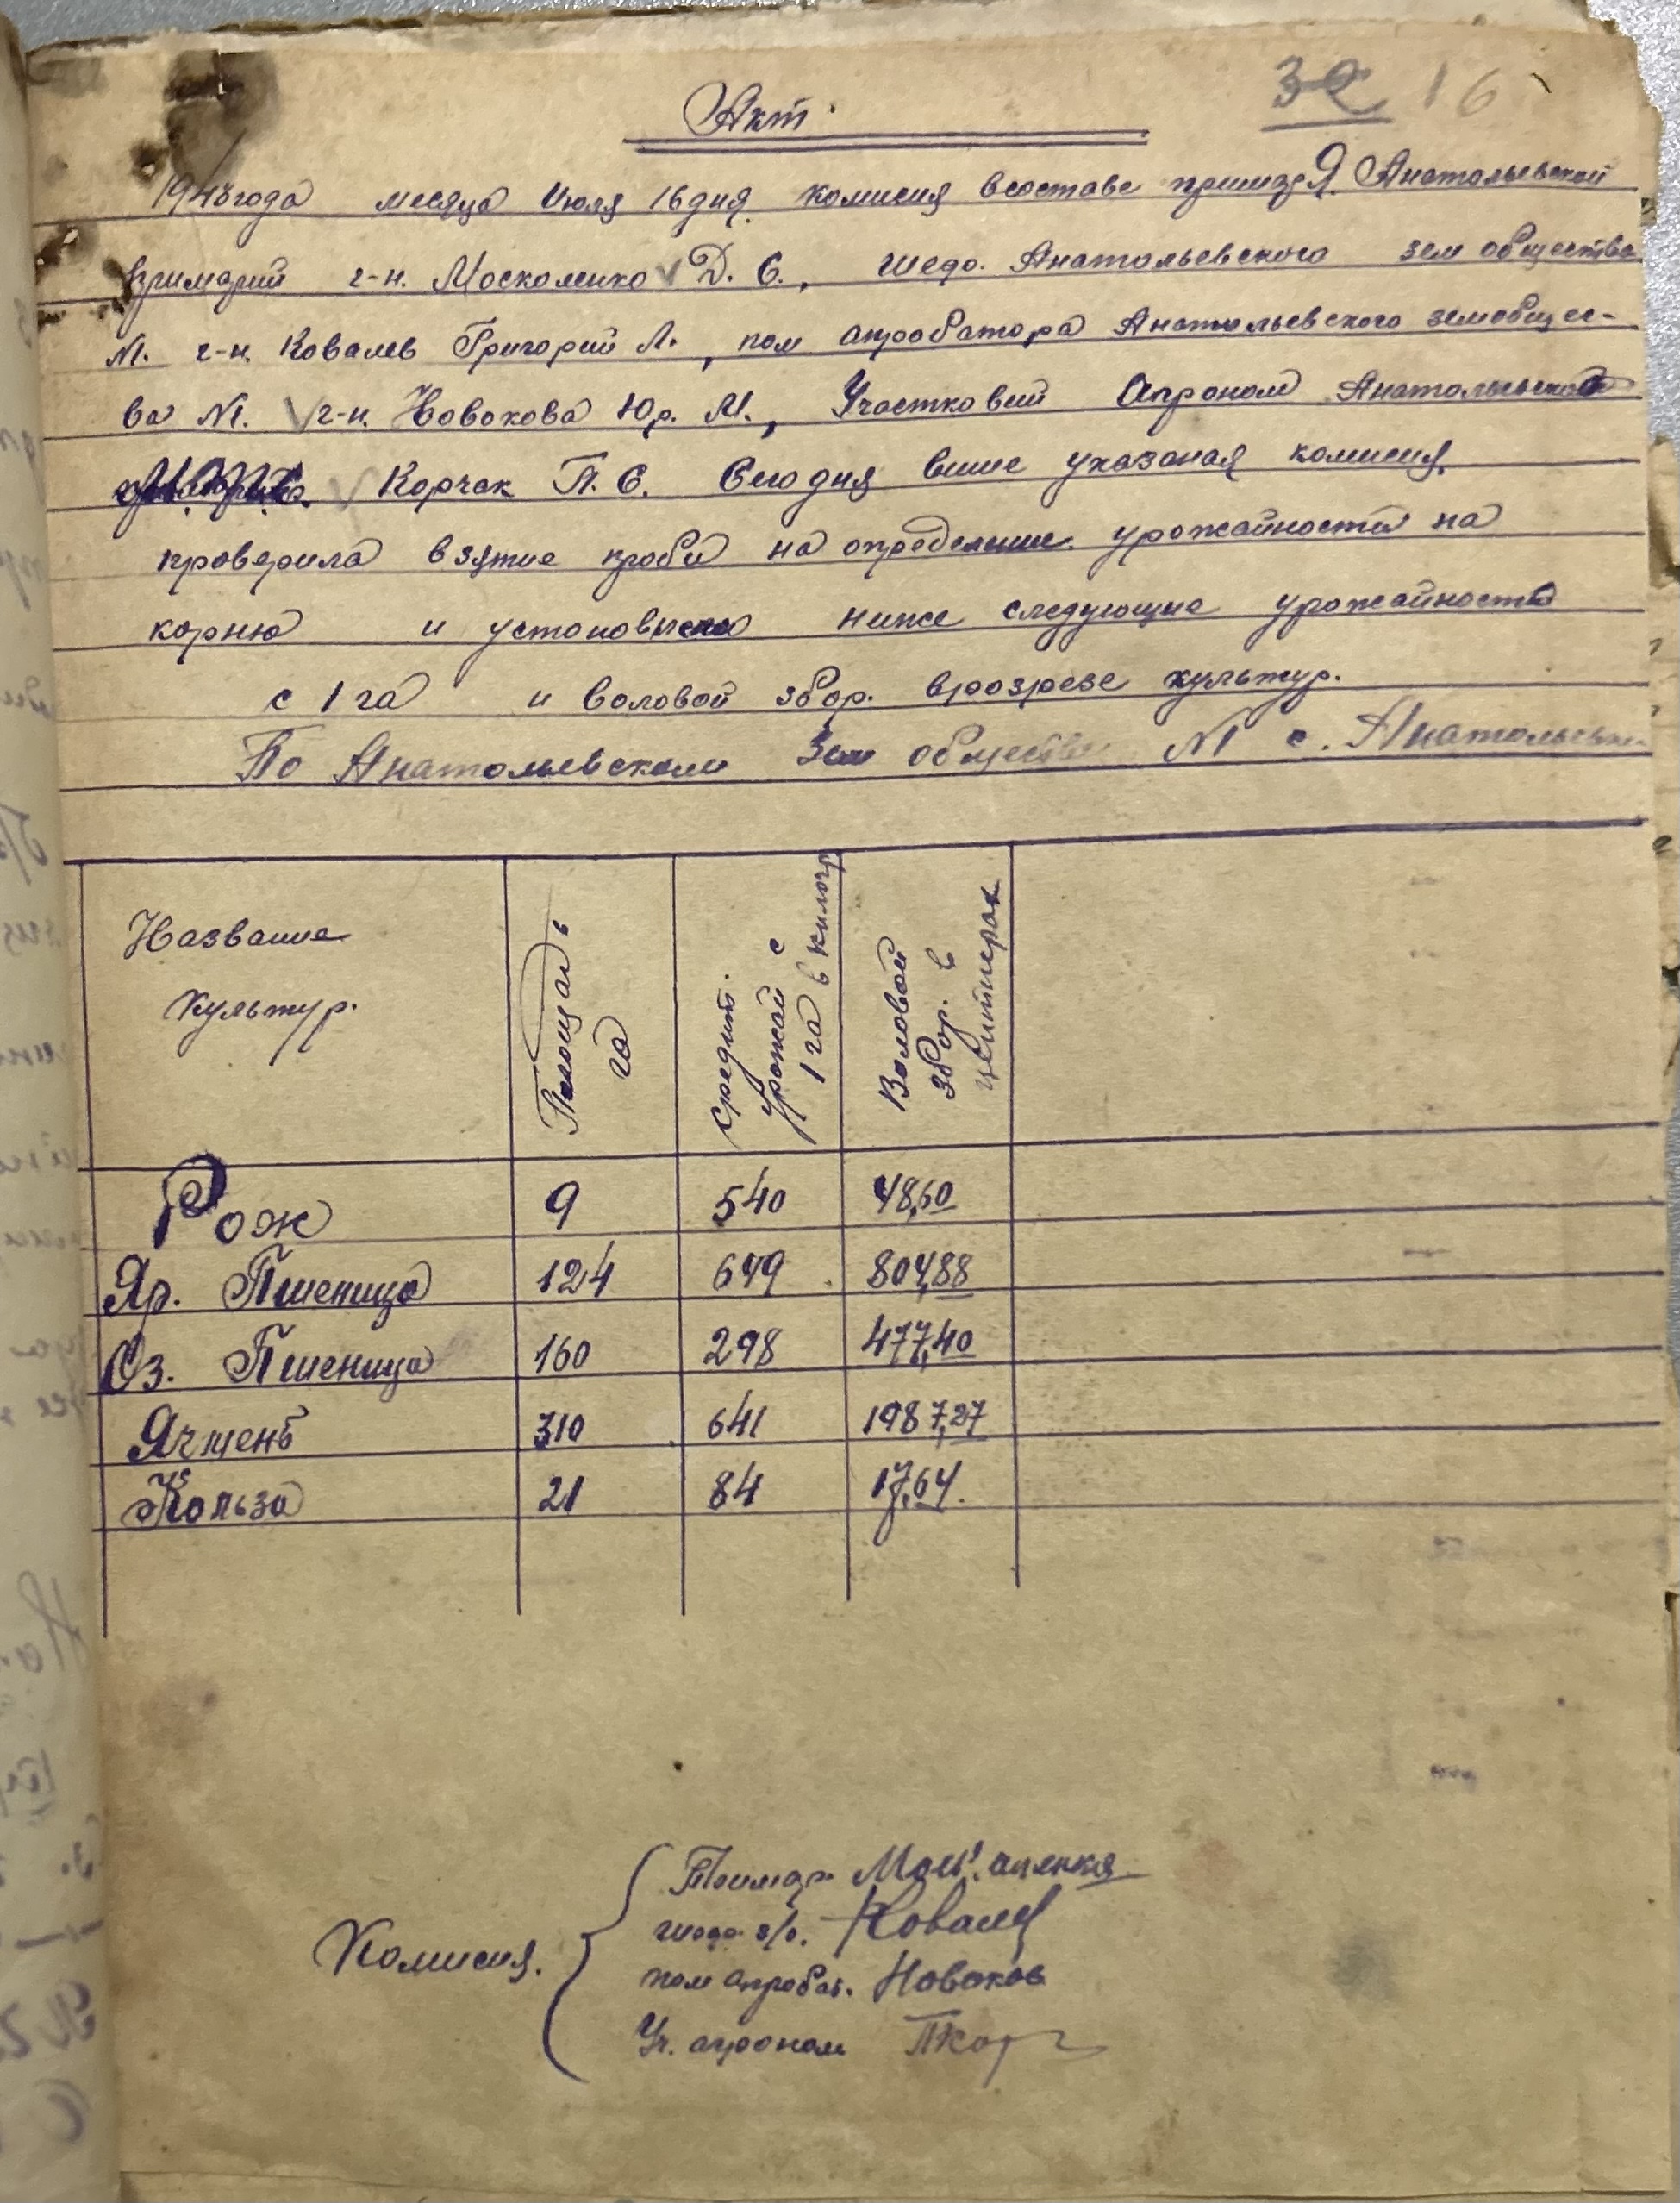 32 16
Акт.
1943 года месяца Июля 16 дня. комисия в составе примаря Анатольевской
примарии г-н. Москаленко Д. С., шефа. Анатольевского зем общества
N1. г-н. Ковалев Григорий Л., пом апробатора Анатольевского земобщес-
ва N1. г-н. Новакова Юр. М., Участковий Агроном Анатольевской
Корчак П. С. Сегодня више указаная комисия
проверила взятие проби на определение урожайности на
корню и устоновила ниже следующие урожайность
с 1 га и воловой збор. врозрезе культур.
По Анатольевском Зем обществе N1 с. Анатольевк.
Название культур.
Площадь га
средн. урожай с 1 га в килогр
Воловой збор. в центнерах
Рож 9 540 48,60
Яр. Пшеница 124 649 804,88
Оз. Пшеница 160 298 477,40
Ячмень 310 641 1987,27
Кольза 21 84 17,64.
Комисия.
Примарь Москаленко
шеф з/о. Ковалев
пом апробат. Новаков
Уч. агроном ПКор